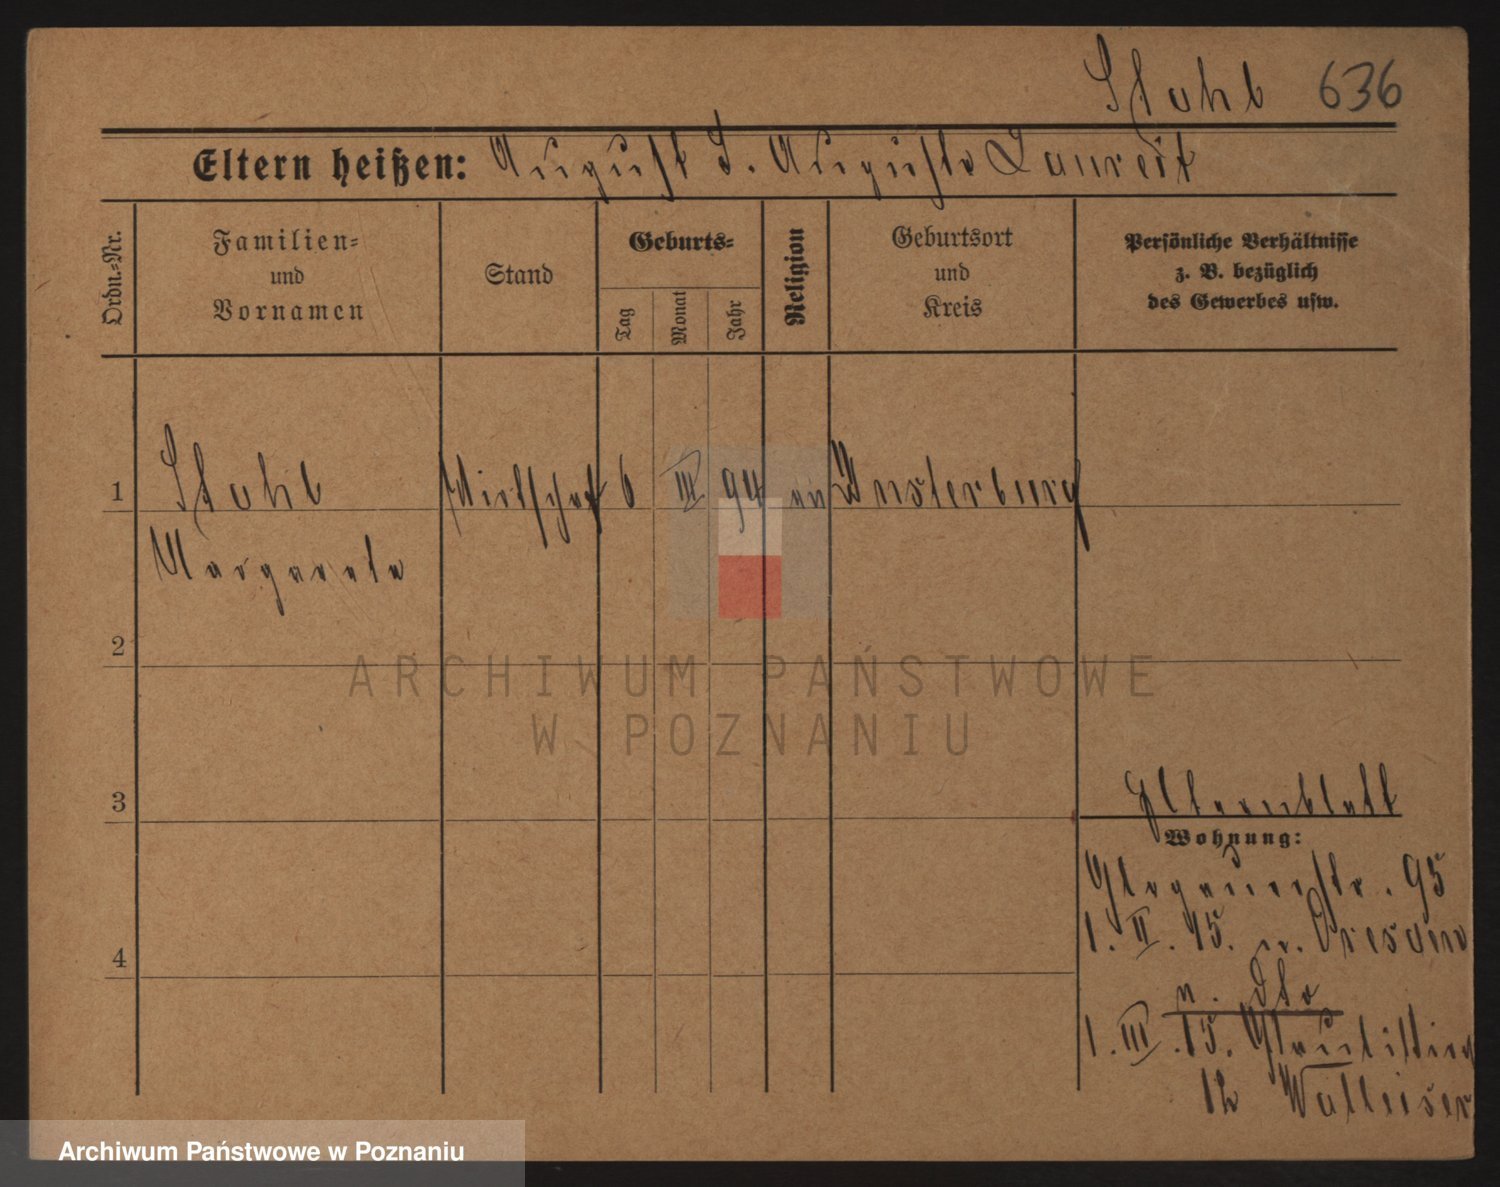 Stohb 636
Eltern heißen: August S. Auguste
Ordn.-Nr.
Familien-
und
Vornamen
Stand
Geburts-
Tag
Monat
Jahr
Religion
Geburtsort
und
Kreis
Persönliche Verhältnisse
z. B. bezüglich
des Gewerbes usw.
1 Stohb 6 III 94 ev Insterburg
Margarete
2
ARCHIWUM PAŃSTWOWE
W POZNANIU
3
Elternblatt
Wohnung:
Glogauerstr. 95
1. II. 15. n. Dresden
4
n. dto
1. III. 15.
12 Walleiser
Archiwum Państwowe w Poznaniu